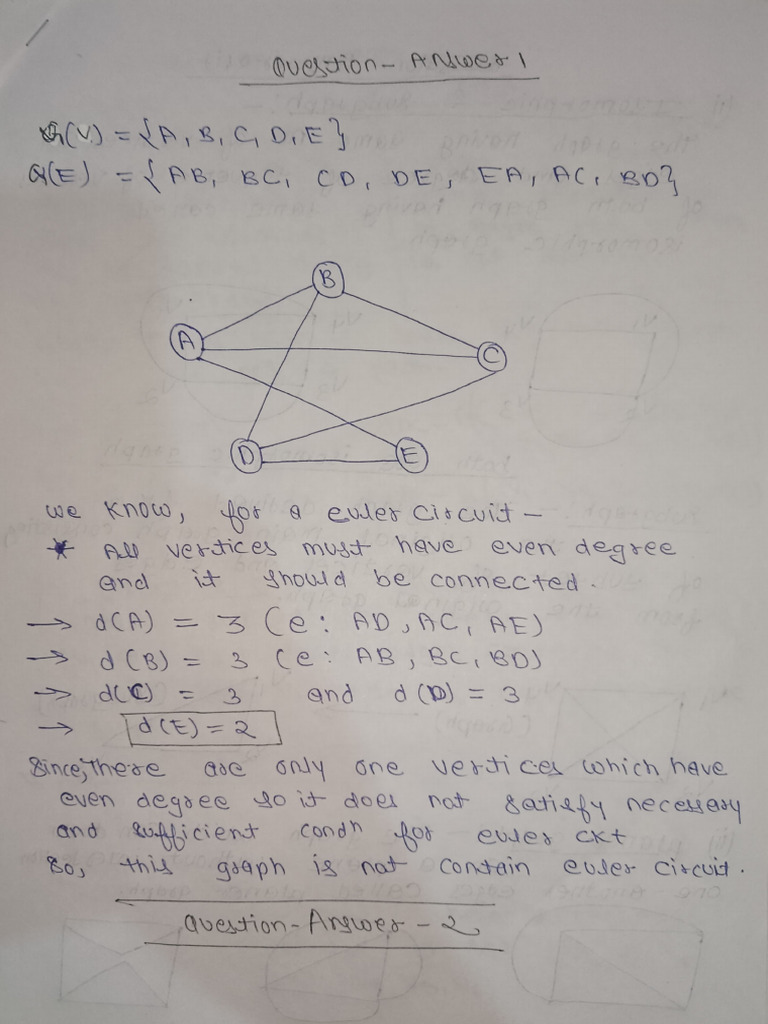 Question - Answer 1
G(V) = {A, B, C, D, E}
G(E) = {AB, BC, CD, DE, EA, AC, BD}
B
A
C
D
E
we know, for a euler circuit -
* All vertices must have even degree
and it should be connected.
→ d(A) = 3 (e: AD, AC, AE)
→ d(B) = 3 (e: AB, BC, BD)
→ d(C) = 3 and d(D) = 3
→ d(E) = 2
Since, there are only one vertices which have
even degree so it does not satisfy necessary
and sufficient condn for euler ckt
so, this graph is not contain euler circuit.
Question - Answer - 2